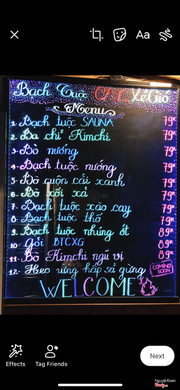 Aa
Bạch Tuộc
Xe Gió
Menu
1. Bạch tuộc SAUNA 79k
2. Ba chỉ Kimchi 79k
3. Bò nướng 79k
4. Bạch tuộc nướng 79k
5. Bò cuộn cải xanh 79k
79k
7. Bạch tuộc xào cay 79k
8. Bạch tuộc thố 79k
9. Bạch tuộc nhúng ớt 89k
10. Gỏi BTCXG 89k
11. Bò Kimchi ngũ vị 89k
12. Heo rừng hấp sả gừng COMING SOON
WELCOME
Effects
Tag Friends
Next